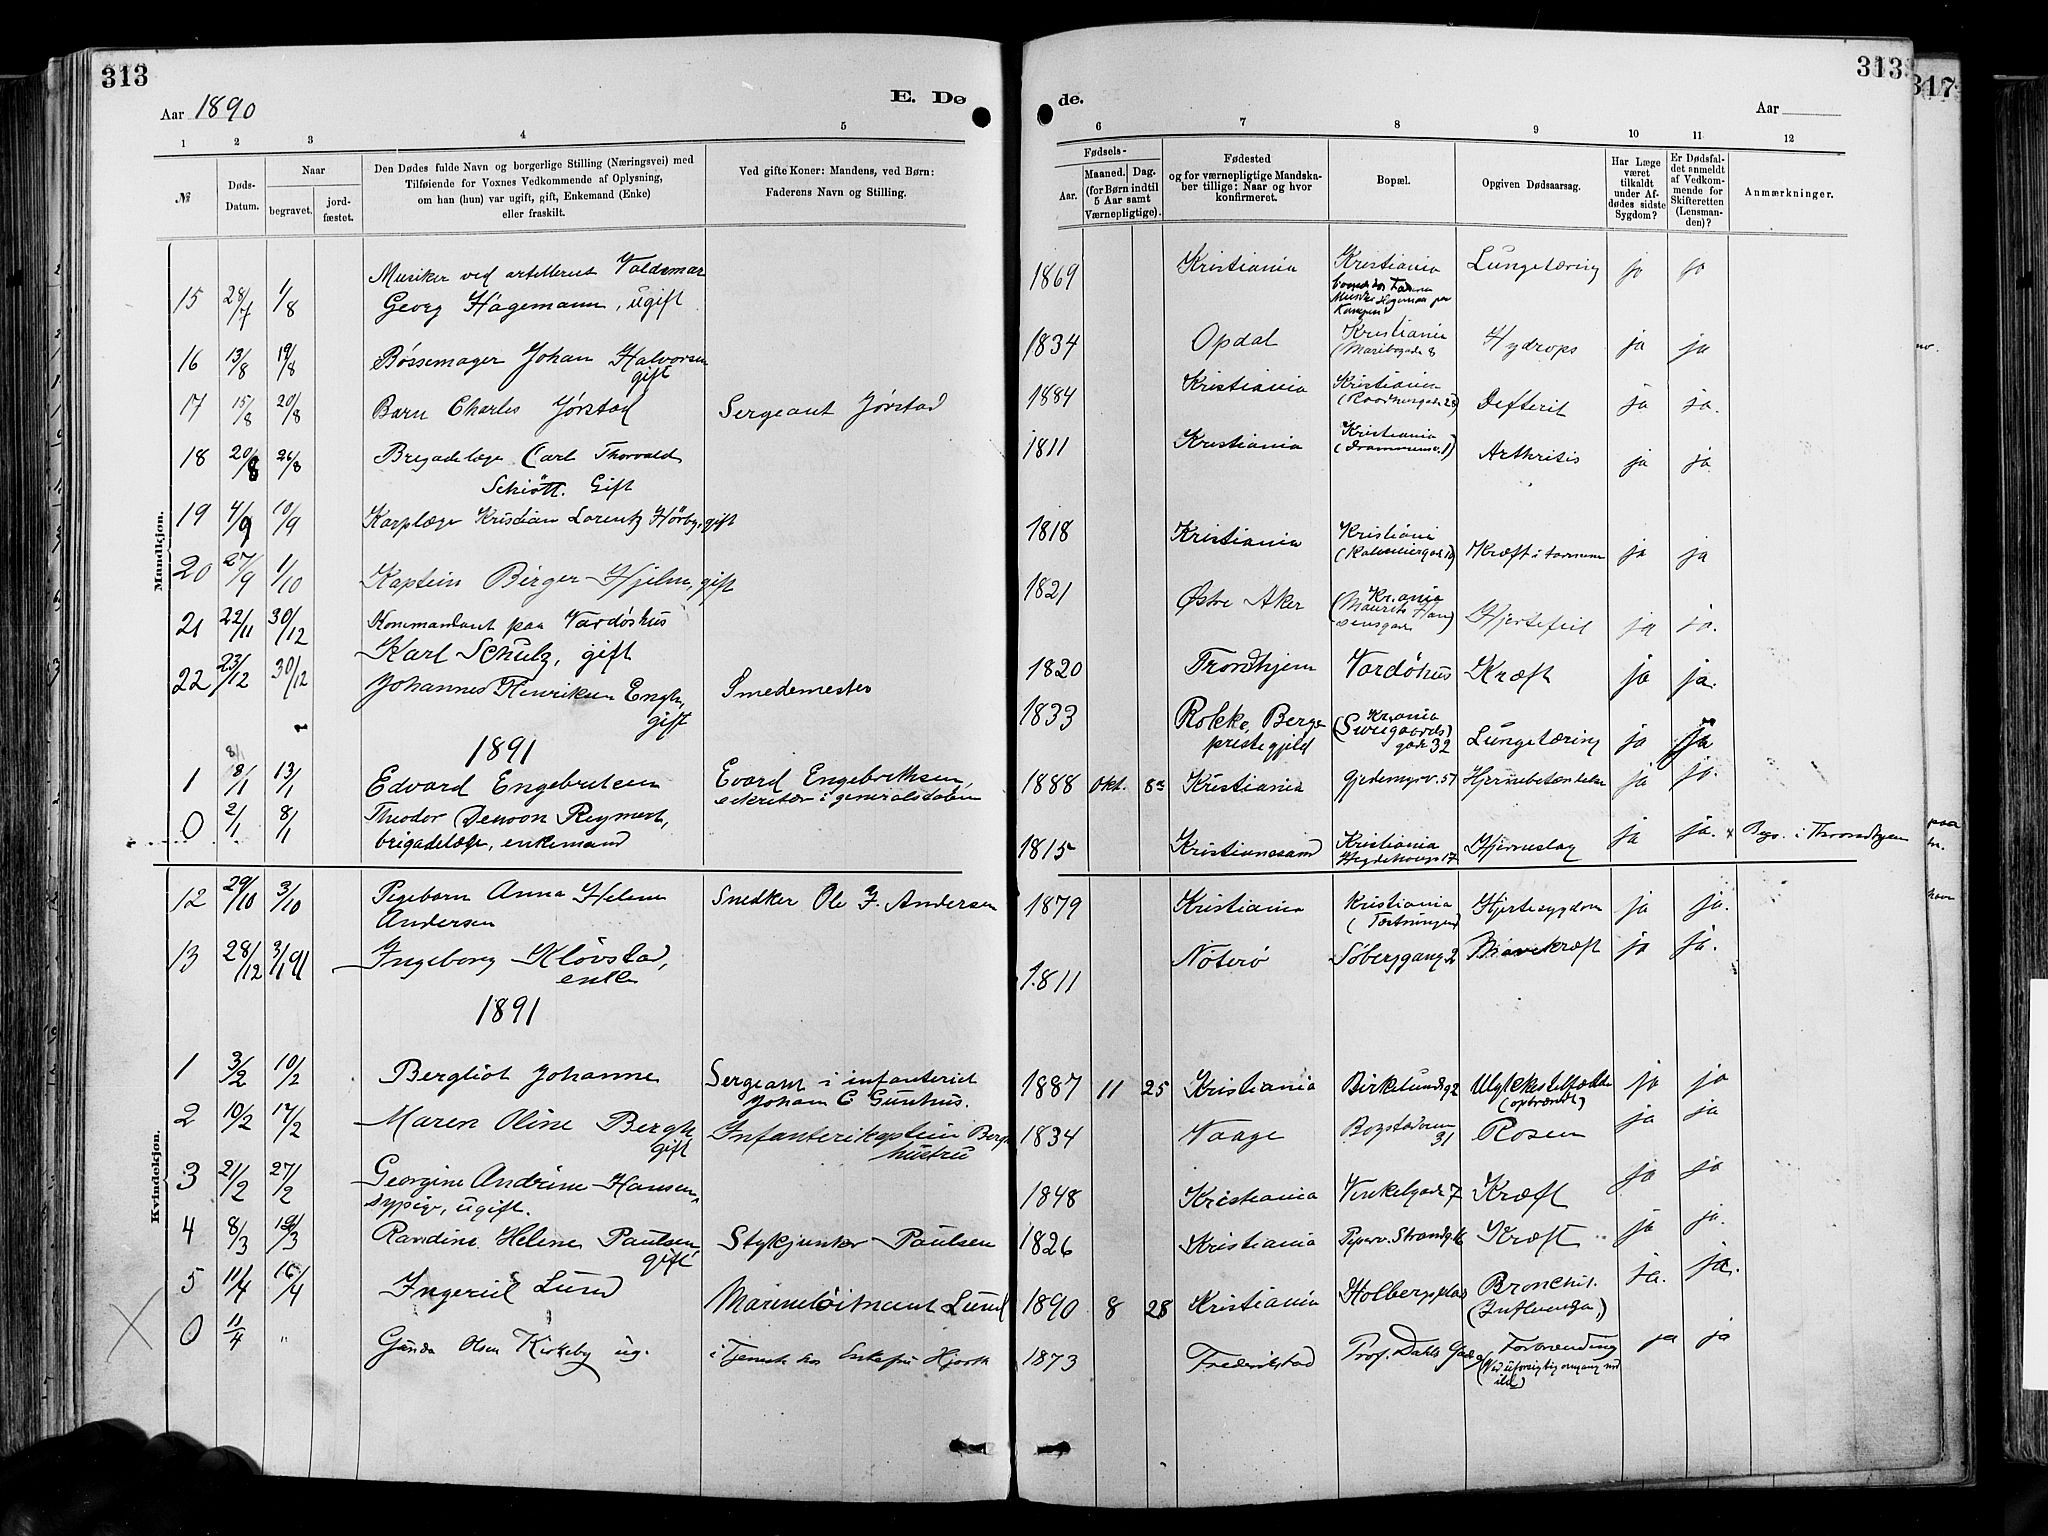 313
Aar 1890
E. Dø
1 2 3 4 5
№
Døds-Datum.
Naar
begravet.
jord-fæstet.
Den Dødes fulde Navn og borgerlige Stilling (Næringsvei) med
Tilføiende for Voxnes Vedkommende af Oplysning,
om han (hun) var ugift, gift, Enkemand (Enke)
eller fraskilt.
Ved gifte Koner: Mandens, ved Børn:
Faderens Navn og Stilling.
Mandkjøn.
Musiker ved artilleriet Valdemar
15 28/7 1/8 Georg Hagemann, ugift
16 13/8 19/8 Bøssemager Johan Halvorsen
gift
17 15/8 20/8 Barn Charles Jørstad Sergeant Jørstad
18 20/8 26/8 Brigadelæge Carl Thorvald
Schiøtt. Gift
19 4/9 10/9 Korplæge Kristian Lorentz Hørby, gift
20 27/9 1/10 Kaptein Birger Hjelm, gift
21 22/11 30/12 Kommandant paa Vardøhus
Karl Schulz, gift
22 23/12 30/12 Johannes Henriksen Engh, Smedemester
gift
1891
8/1
1 8/1 13/1 Edvard Engebretsen Evard Engebrethsen,
sekretær i generalstaben
0 2/1 8/1 Theodor Denoon Reymert,
brigadelæge, enkemand
Kvindekjøn.
12 29/10 3/10 Pigebarn Anna Helene Snedker Ole J. Andersen
Andersen
13 28/12 3/1 91 Ingeborg Kløvstad,
enke
1891
1 3/2 10/2 Bergliot Johanne Sergeant i infanteriet
Johan C Gunhus.
2 10/2 17/2 Maren Oline Bergh Infanterikaptein Berghs
gift hustru
3 21/2 27/2 Georgine Andrine Hansen,
sypige, ugift.
4 8/3 12/3 Randine Helene Paulsen, Stykjunker Paulsen
gift
5 11/4 16/4 Ingerid Lund Marineløitnant Lund
0 11/4 " Gunda Olsen Kirkeby ug. i Tjeneste hos Enkefru Hjorth
de.
Aar
313
317
6 7 8 9 10 11 12
Fødsels-
Aar.
Maaned. Dag.
(for Børn indtil
5 Aar samt
Værnepligtige).
Fødested
og for værnepligtige Mandska-
ber tillige: Naar og hvor
konfirmeret.
Bopæl.
Opgiven Dødsaarsag.
Har Læge
været
tilkaldt
under Af-
dødes sidste
Sygdom?
Er Dødsfal-
det anmeldt
af Vedkom-
mende for
Skifteretten
(Lensman-
den)?
Anmærkninger.
1869 Kristiania Kristiania Lungetæring ja ja
Kampen
1834 Opdal Kristiania Hydrops ja ja
(Maribogade 8
1884 Kristiania Kristiania Defterit ja ja.
(Raadhusgade 28)
1811 Kristiania Kristiania Arthritis ja ja
(Drammensv. 1)
1818 Kristiania Kristiania Kræft i tarmene ja ja
1821 Østre Aker Kr.ania Hjertefeil ja ja.
(Maurits Han
sensgade)
1820 Trondhjem Vardøhus Kræft ja ja.
1833 Rokke, Bergs Kr.ania Lungetæring ja ja
prestegjeld (Sverigaards
gade 32
1888 Okt. 8de Kristiania Gjedemyrsv. 51 Hjernebetændelse ja ja.
1815 Kristianssand Kristiania Hjerneslag ja ja. x Begr. i Throndhjem
Hegdehaugs 17
1879 Kristiania Kristiania Hjertesygdom ja ja.
(Fæstningen)
1811 Nøterø Søbergsgang 2 Mavekræft ja ja.
1887 11 25 Kristiania Birkelundsg 2 Ulykkestilfælde ja ja
(opbrændt)
1834 Vaage Bogstadveien Rosen ja ja
31
1848 Kristiania Vinkelgade 7 Kræft ja ja
1826 Kristiania Piperv. Strandg. 16 Kræft ja ja.
1890 8 28 Kristiania Holbergsplads Bronchit. ja. ja.
(Influenza,)
1873 Frederikstad Prof. Dahls Gade 9 Forbrænding ja ja
(Ved uforsigtig omgang med
ild)